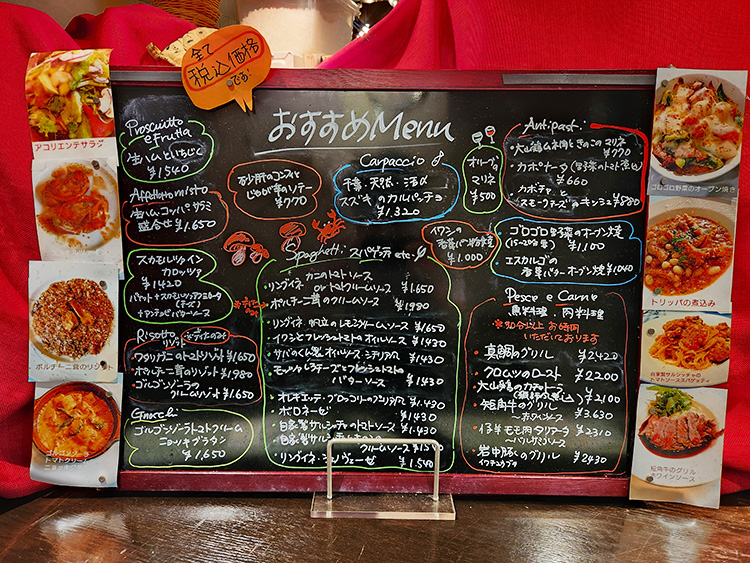 全て
税込価格
です!
おすすめMenu
Prosciuitto
e Frutta
生ハムといちじく
¥1.540
Affettato misto
生ハム.コッパ.サラミ
盛合せ ¥1.650
スカモルツァ イン
カロッツァ
¥1420
リゾット
ワタリガニのトマトリゾット ¥1.650
ポルチーニ茸のリゾット ¥1.980
ゴルゴンゾーラの
クリームリゾット ¥1.650
Gnocchi
ゴルゴンゾーラトマトクリーム
ニョッキグラタン
¥1.650
砂肝のコンフィと
じゃが芋のソテー
¥770
Carpaccio
スズキ のカルパッチョ
¥1.320
オリーブの
マリネ
¥500
イワシの
香草パン粉焼
¥1.000
Spaghetti スパゲッティ etc.
カニのトマトソース
リングイネ or トマトクリームソース ¥1.650
ポルチーニ茸のクリームソース ¥1.980
・リングイネ 帆立のレモンクリームソース ¥1.650
・イワシとフレッシュトマトのオイルソース ¥1430
・サバのくん製オイルソース シチリア風 ¥1430
・モッツァレラチーズとフレッシュトマト
バターソース ¥1430
・オレキエッテ・ブロッコリーのアンチョビ風 ¥1.430
・ボロネーゼ ¥1.430
・自家製サルシッチャのトマトソース ¥1430
・リングイネ・ジェノヴェーゼ ¥1.540
Antipasti
・大山鶏ムネ肉ときのこのマリネ
¥770
・カポナータ(野菜のトマト煮込)
¥660
・カボチャと
スモークチーズのキッシュ ¥880
・ゴロゴロ野菜のオーブン焼
(15~20分) ¥1.100
・エスカルゴの
香草バターオーブン焼 ¥1040
Pesce e Carne
魚料理・肉料理
※30分以上お時間
いただいております
・真鯛のグリル ¥2420
・クロムツのロースト ¥2200
・大山鶏のカチャトーラ
¥2.100
・短角牛のグリル
~赤ワインソース ¥3.630
・仔羊モモ肉タリアータ ¥2310
~バルサミコソース
・岩中豚のグリル ¥2430
イワチュウブタ
アコリエンテサラダ
ポルチーニ茸のリゾット
ゴルゴンゾーラ
トマトクリーム
ゴロゴロ野菜のオーブン焼き
トリッパの煮込み
自家製サルシッチャの
トマトソーススパゲッティ
短角牛のグリル
赤ワインソース